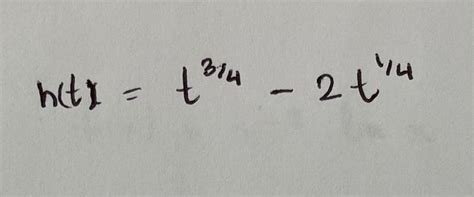 h(t) = t^{3/4} - 2t^{1/4}